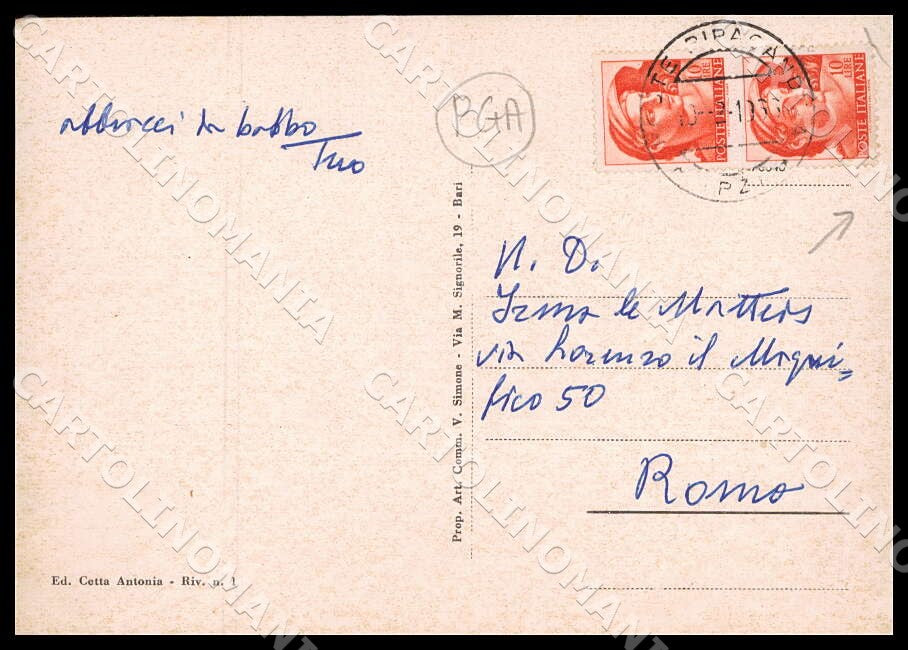 abbracci da babbo
Tuo
BGA
10 LIRE
POSTE ITALIANE
10 LIRE
POSTE ITALIANE
PZ
N. D.
Irma de Matteis
via Lorenzo il Magni=
fico 50
Roma
Prop. Art. Comm. V. Simone - Via M. Signorile, 19 - Bari
Ed. Cetta Antonia - Riv. n. 1
CARTOLINOMANIA
CARTOLINOMANIA
CARTOLINOMANIA
CARTOLINOMANIA